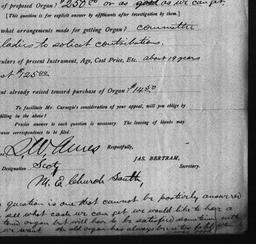 of proposed Organ? $2500 or as good as we can get.
[This question is for explicit answer by applicants after investigation by them.]
what arrangements made for getting Organ? Committee
ladies to solicit contributions.
culars of present Instrument, Age, Cost Price, Etc. about 18 years
st $125.00
nt already raised toward purchase of Organ? $1450
To facilitate Mr. Carnegie's consideration of your appeal, will you oblige by
filling in the above!
Precise answer to each question is necessary. The leaving of blanks may
cause correspondence to be filed.
Respectfully,
JAS. BERTRAM,
Secretary.
Designation
M. E. Church South,
question is one that cannot be positively answered
see what cash we can get we would like to have a
organ but will have to be satisfied
we want. old organ has always been